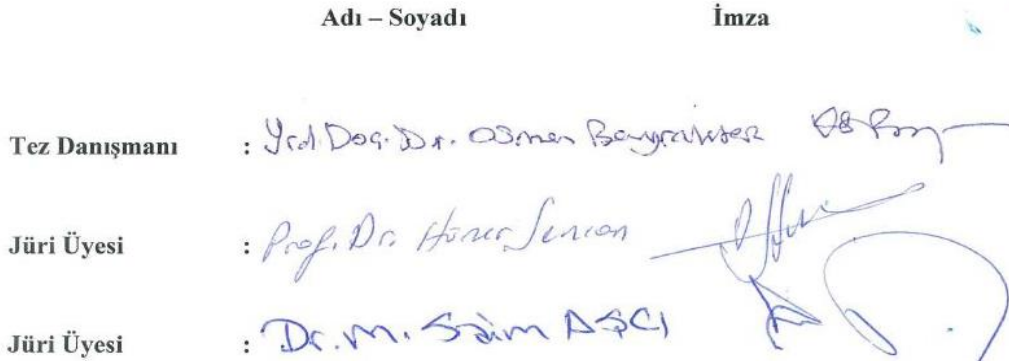 Adı – Soyadı İmza
Tez Danışmanı : Yrd. Doç. Dr. Osman Bayraktar
Jüri Üyesi : Prof. Dr. Hüner Şencan
Jüri Üyesi : Dr. M. Saim AŞCI